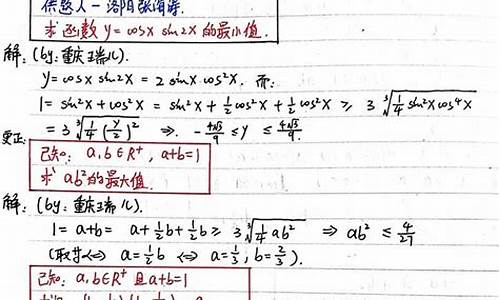 供题人-洛阳张海涛.
求函数 y = cosx sin2x 的最小值.
解: (by: 重庆瑞儿).
y = cosx sin2x = 2 sinx cos²x. 而:
1 = sin²x + cos²x = sin²x + ½cos²x + ½cos²x ≥ 3 ∛(¼ sin²x cos⁴x)
= 3 ∛(¼ (y/2)²) ⇒ -4√3/9 ≤ y ≤ 4√3/9.
更正:
已知: a, b ∈ R⁺, a+b=1
求 ab² 的最大值.
解: (by: 重庆瑞儿).
1 = a+b = a + ½b + ½b ≥ 3 ∛(¼ ab²) ⇒ ab² ≤ 4/27
(取等 ⇔ a = ½b ⇔ a = ⅓, b = ⅔).
已知: a, b ∈ R⁺ 且 a+b=1